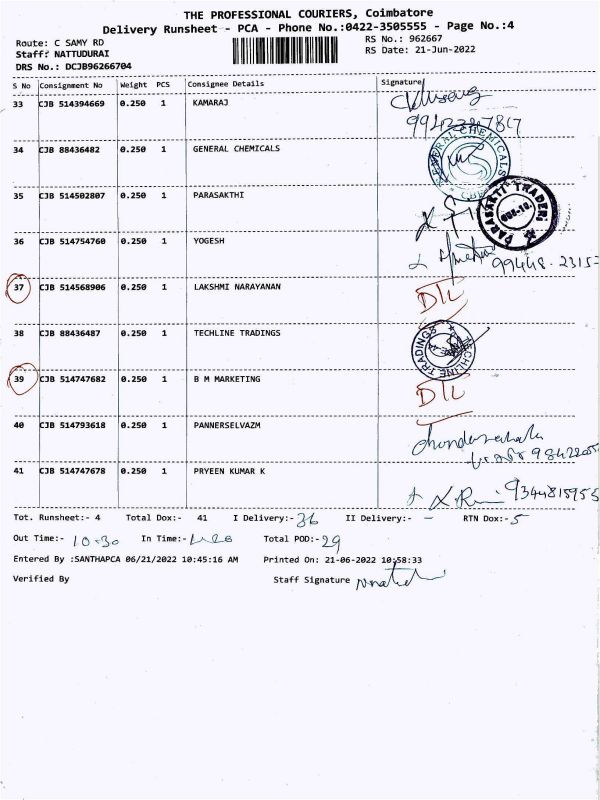 THE PROFESSIONAL COURIERS, Coimbatore
Delivery Runsheet - PCA - Phone No.:0422-3505555 - Page No.:4
Route: C SAMY RD RS No.: 962667
Staff: NATTUDURAI RS Date: 21-Jun-2022
DRS No.: DCJB96266704
S No Consignment No Weight PCS Consignee Details Signature
33 CJB 514394669 0.250 1 KAMARAJ
34 CJB 88436482 0.250 1 GENERAL CHEMICALS GENERAL CHEMICALS
35 CJB 514502807 0.250 1 PARASAKTHI PARASAKTI TRADERS
36 CJB 514754760 0.250 1 YOGESH 99448-2315
37 CJB 514568906 0.250 1 LAKSHMI NARAYANAN D/L
38 CJB 88436487 0.250 1 TECHLINE TRADINGS TECHLINE TRADINGS
39 CJB 514747682 0.250 1 B M MARKETING D/L
40 CJB 514793618 0.250 1 PANNERSELVAZM
41 CJB 514747678 0.250 1 PRYEEN KUMAR K 9344815955
Tot. Runsheet:- 4 Total Dox:- 41 I Delivery:- 36 II Delivery:- - RTN Dox:- 5
Out Time:- 10-30 In Time:- Total POD:- 29
Entered By :SANTHAPCA 06/21/2022 10:45:16 AM Printed On: 21-06-2022 10:58:33
Verified By Staff Signature